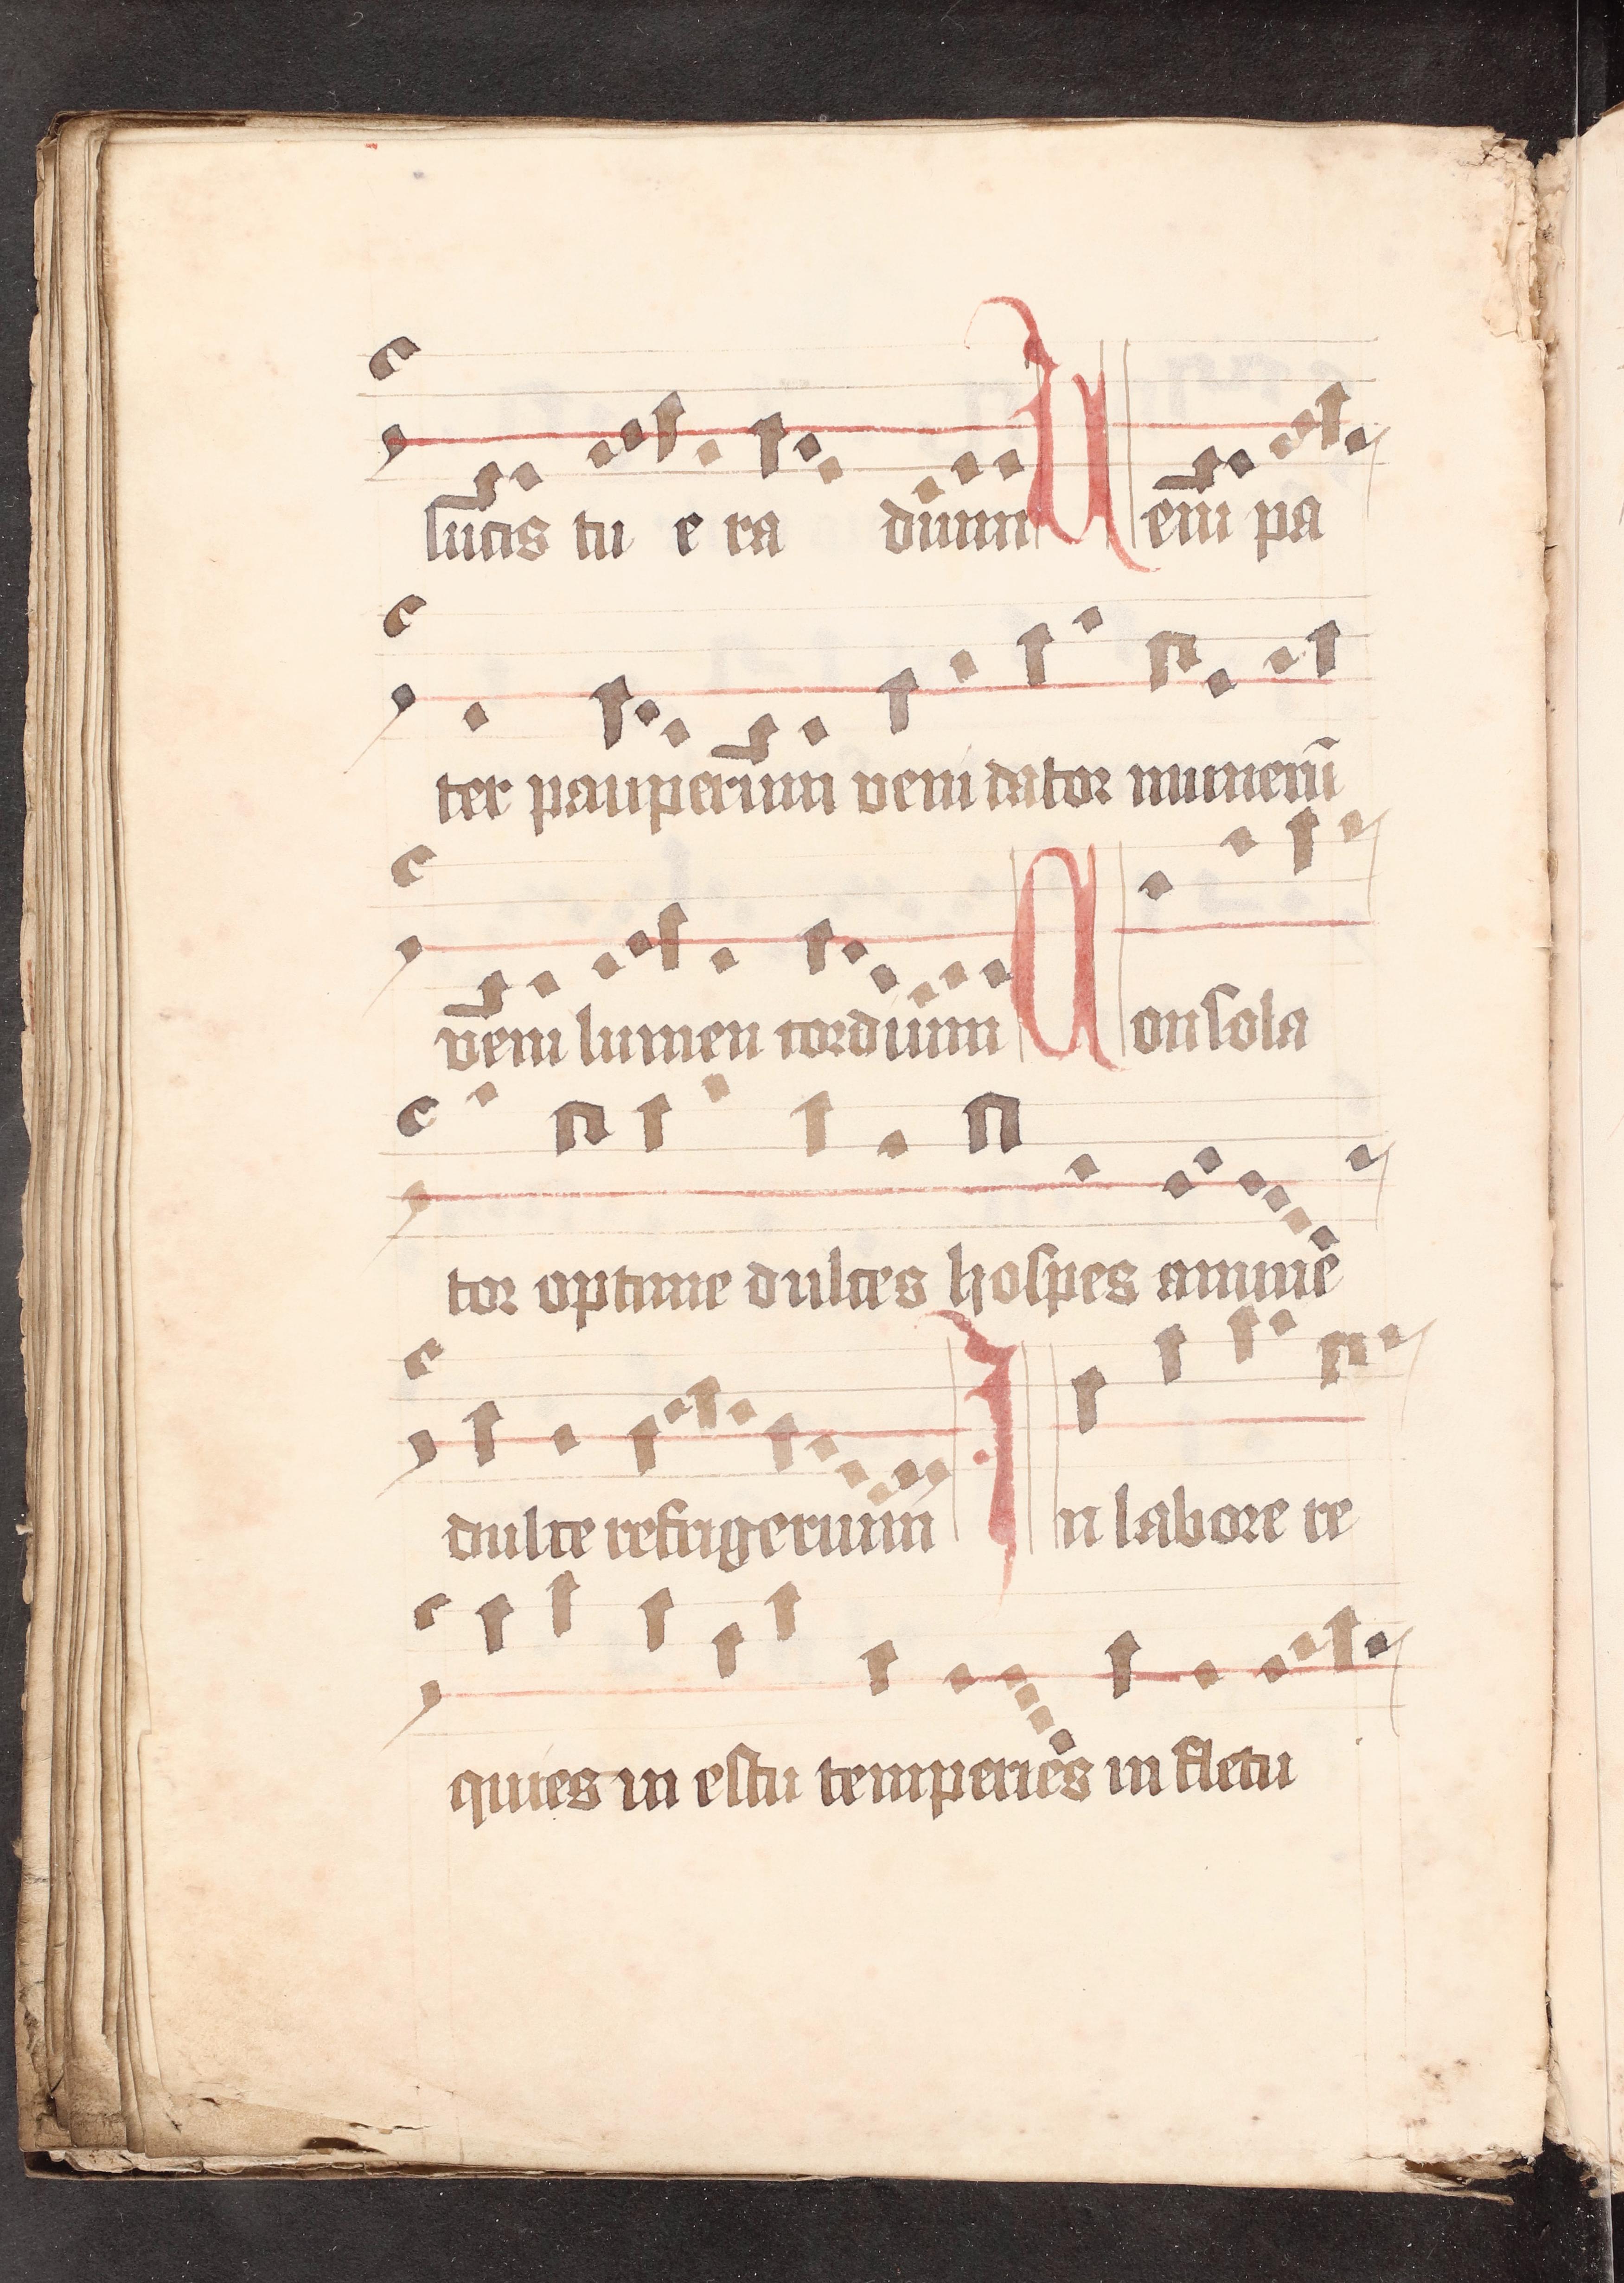 lucis tu e ra dium Ueni pa
ter pauperum veni dator munerū
veni lumen cordium Consola
tor optime dulces hospes anime
dulce refrigerium In labore re
quies in estu temperies in fletu